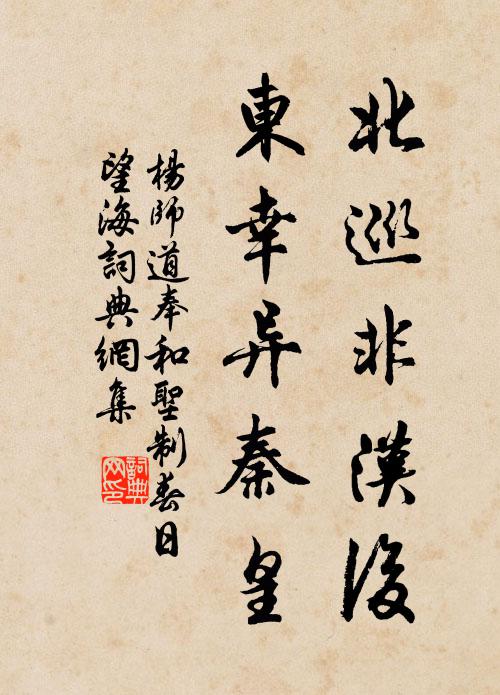 北巡非漢後
東幸异秦皇
楊師道奉和聖制春日
望海詞典網集
詞典网印